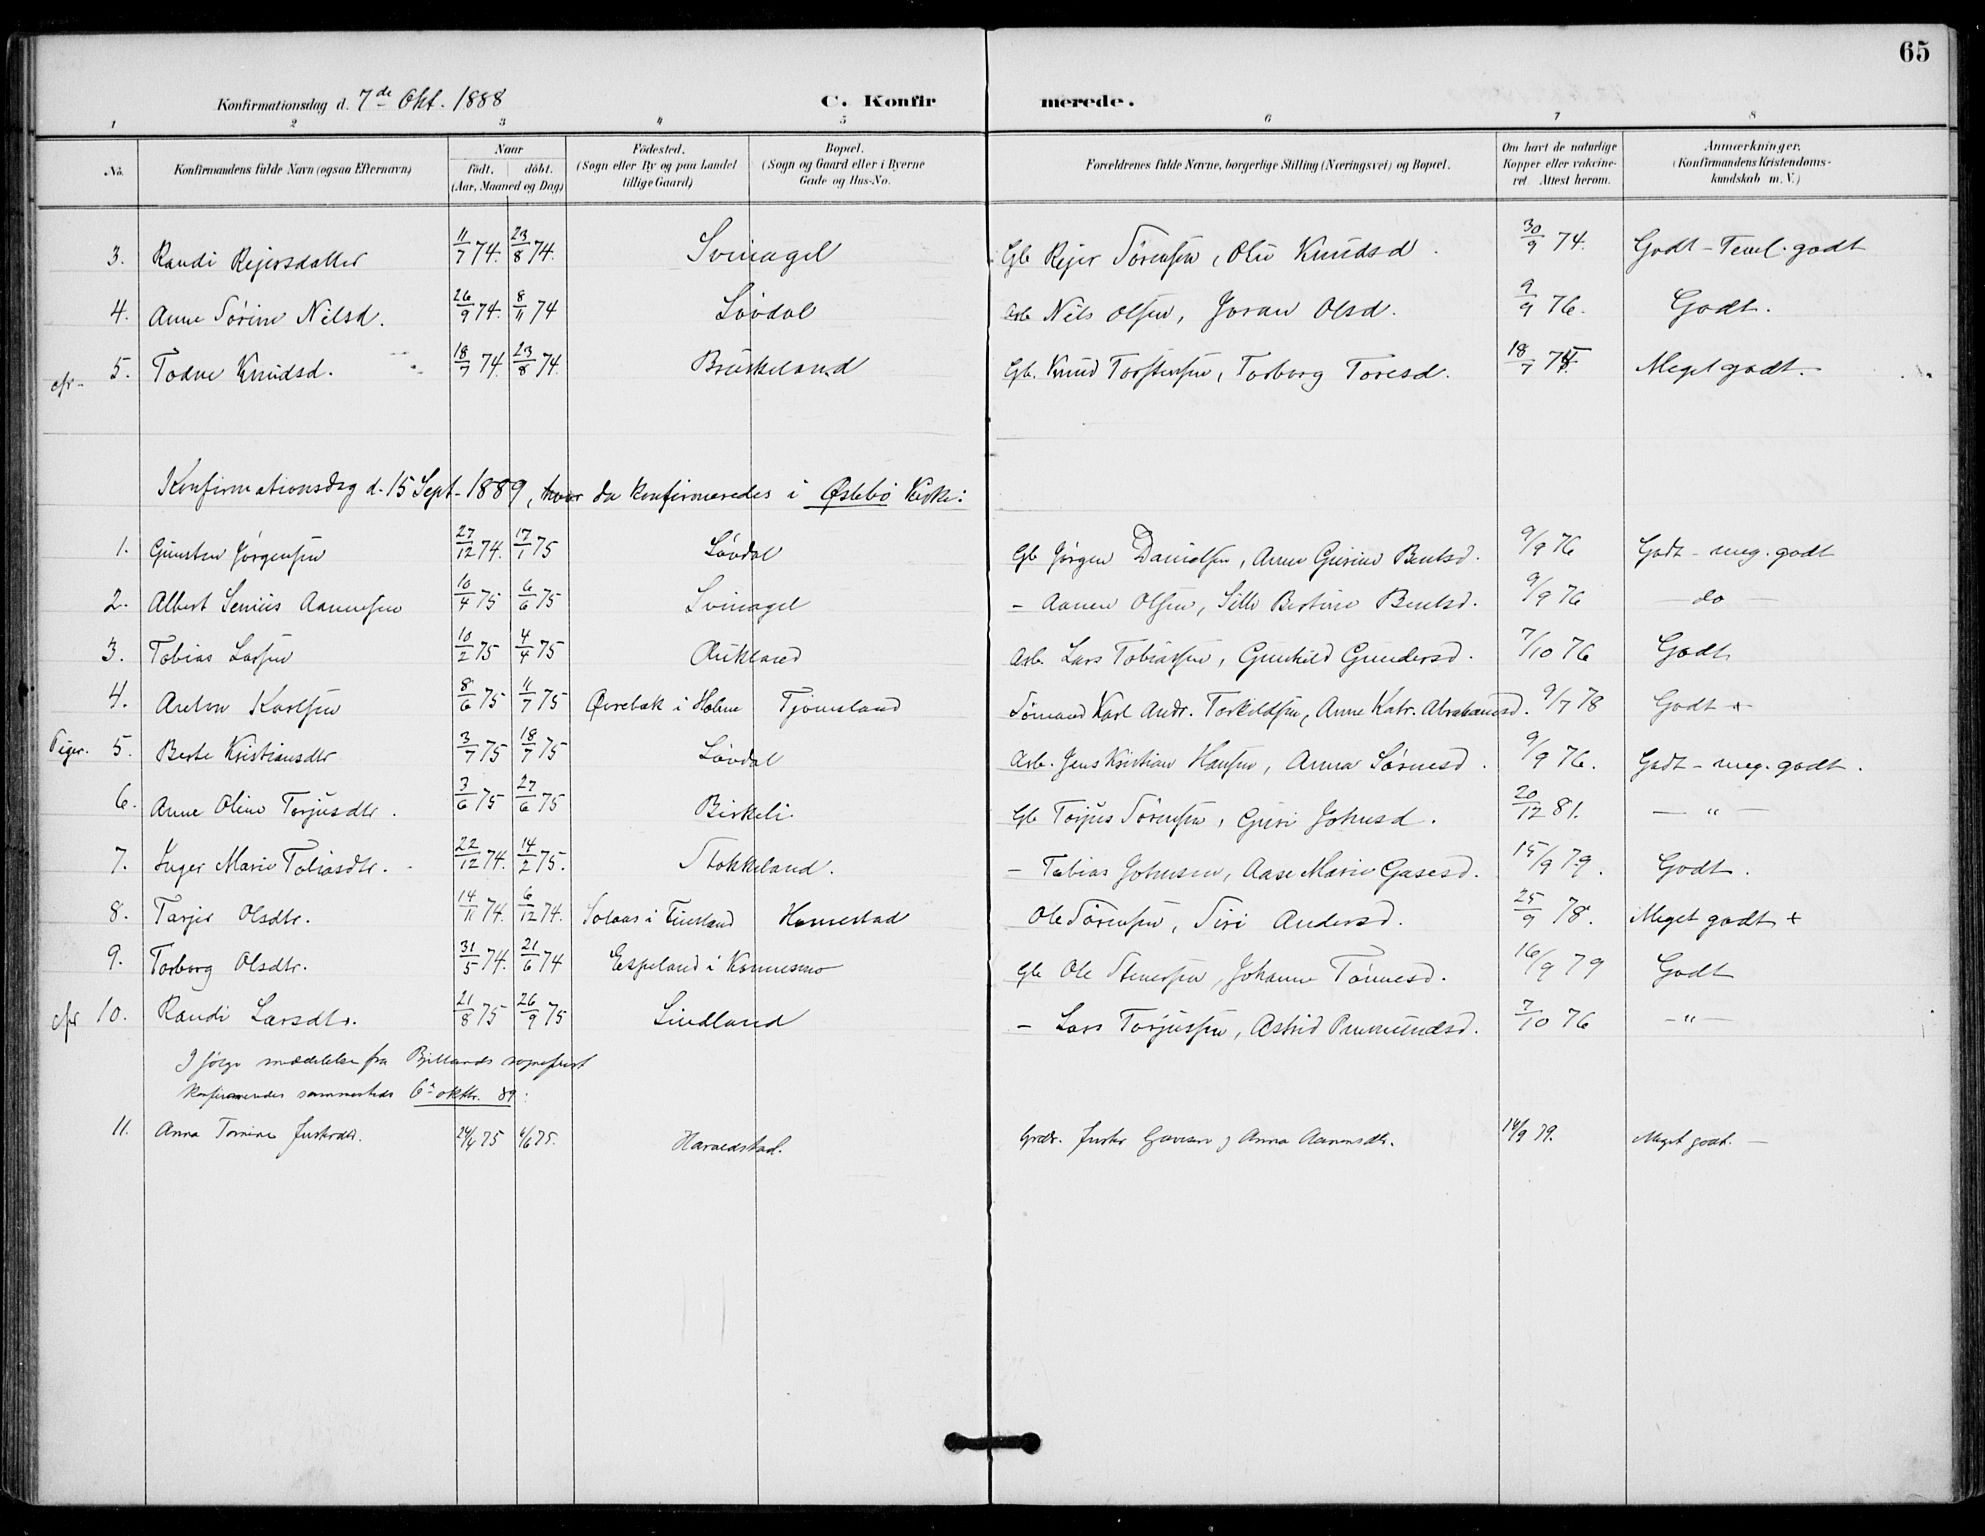 65
Konfirmationsdag d. 7de Okt. 1888 C. Konfir merede.
1 2 3 4 5 6 7 8
No. Konfirmandens fulde Navn (ogsaa Efternavn) Naar födt. döbt. (Aar, Maaned og Dag) Födested. (Sogn eller By og paa Landet tillige Gaard) Bopæl. (Sogn og Gaard eller i Byerne Gade og Hus-No. Forældrenes fulde Navne, borgerlige Stilling (Næringsvei) og Bopæl. Om havt de naturlige Kopper eller vakcineret. Attest herom. Anmærkninger. (Konfirmandens Kristendomskundskab m. V.)
3. Randi Rejersdatter 11/7 74. 23/8 74. Svinagel Gb Rejer Sørensen, Olu Knudsd. 30/9 74. Godt - Temel. godt
4. Anne Sørine Nilsd. 26/9 74. 8/11 74 Løvdal Arb Nils Olsen, Joran Olsd. 9/9 76. Godt.
cfr- 5. Todne Knudsd. 18/7 74. 23/8 74. Bruskeland Gb. Knud Torstensen, Torborg Toresd. 18/7 75 Meget godt.
Konfirmationsdag d. 15 Sept. 1889, da konfirmeredes i Øslebø Kirke:
1. Gunsten Jørgensen 27/12 74. 17/1 75 Løvdal Gb Jørgen Danielsen, Anne Gurine Bentsd. 9/9 76 Godt - meg. godt
2. Albert Senius Aanensen 10/4 75 6/6 75 Svinagel - Aanen Olsen, Sille Bertine Bentsd. 9/9 76 - do -
3. Tobias Larsen 10/2 75 4/4 75 Aukland Arb. Lars Tobiassen, Gunhild Gundersd. 7/10 76 Godt
4. Anton Karlsen 8/6 75 11/7 75 Øvrebæk i Holme Tjomsland Sømand Karl Andr. Torkildsen, Anne Katr. Abrahamsd. 9/7 78 Godt +
Piger. 5. Berte Kristiansdtr 3/7 75 18/7 75 Løvdal Arb. Jens Kristian Hansen, Anna Sørnesd. 9/9 76. Godt - meg. godt.
6. Anne Oline Torjusdtr. 3/6 75 27/6 75 Birkeli. Gb Torjus Sørensen, Guri Johnsd. 20/12 81. - " -
7. Inger Marie Tobiasdtr. 22/12 74. 14/2 75. Stokkeland. - Tobias Johnsen, Aase Marie Gasesd. 15/9 79. Godt.
8. Tarjer Olsdtr. 14/11 74. 6/12 74. Solaas i Finsland Homestad Ole Sørensen, Siri Andersd. 25/9 78. Meget godt +
9. Torborg Olsdtr. 31/5 74. 21/6 74 Espeland i Konnesmo Gb Ole Stenersen, Johanne Tønnesd. 16/9 79 Godt
cfr 10. Randi Larsdtr. 21/8 75 26/9 75 Lindland - Lars Torjussen, Astrid Omundsd. 7/10 76 - " -
I følge meddelelse fra Bjellands sogneprest
konfirmeredes sammesteds 6te oktbr. 89:
11. Anna Tomine Justsdtr. 24/4 75 6/6 75. Haraldstad. Grdr. Just Gavesen og Anna Aanensdtr. 14/9 79. Meget godt. -